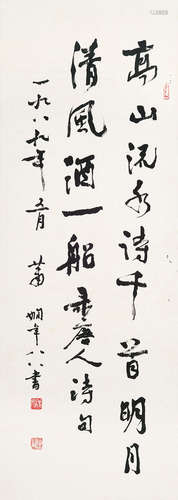 高山流水诗千首明月
清风酒一船录唐人诗句
一九八九年五月萧娴年八八书